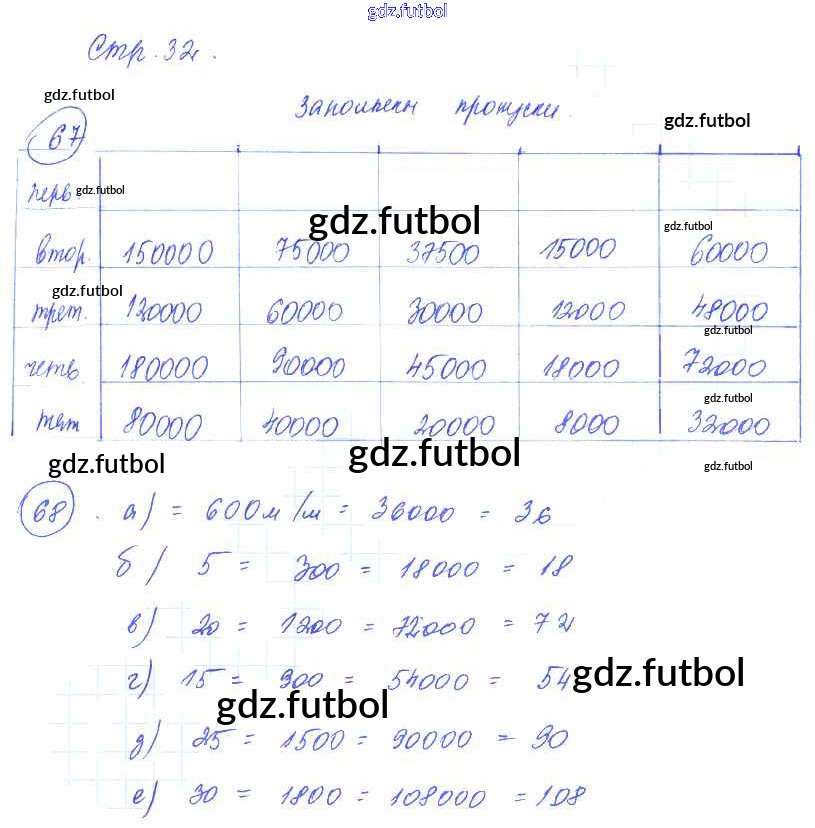 gdz.futbol
Стр. 32.
gdz.futbol
Заполнены пропуски.
gdz.futbol
67
перв. gdz.futbol
gdz.futbol
gdz.futbol
втор. 150000 75000 37500 15000 60000
gdz.futbol
трет. 120000 60000 30000 12000 48000
gdz.futbol
четв. 180000 90000 45000 18000 72000
gdz.futbol
пят 80000 40000 20000 8000 32000
gdz.futbol gdz.futbol gdz.futbol
68. а) = 600 м/м = 36000 = 36
б) 5 = 300 = 18000 = 18
в) 20 = 1200 = 72000 = 72
г) 15 = 900 = 54000 = 54
gdz.futbol
gdz.futbol
д) 25 = 1500 = 90000 = 90
е) 30 = 1800 = 108000 = 108